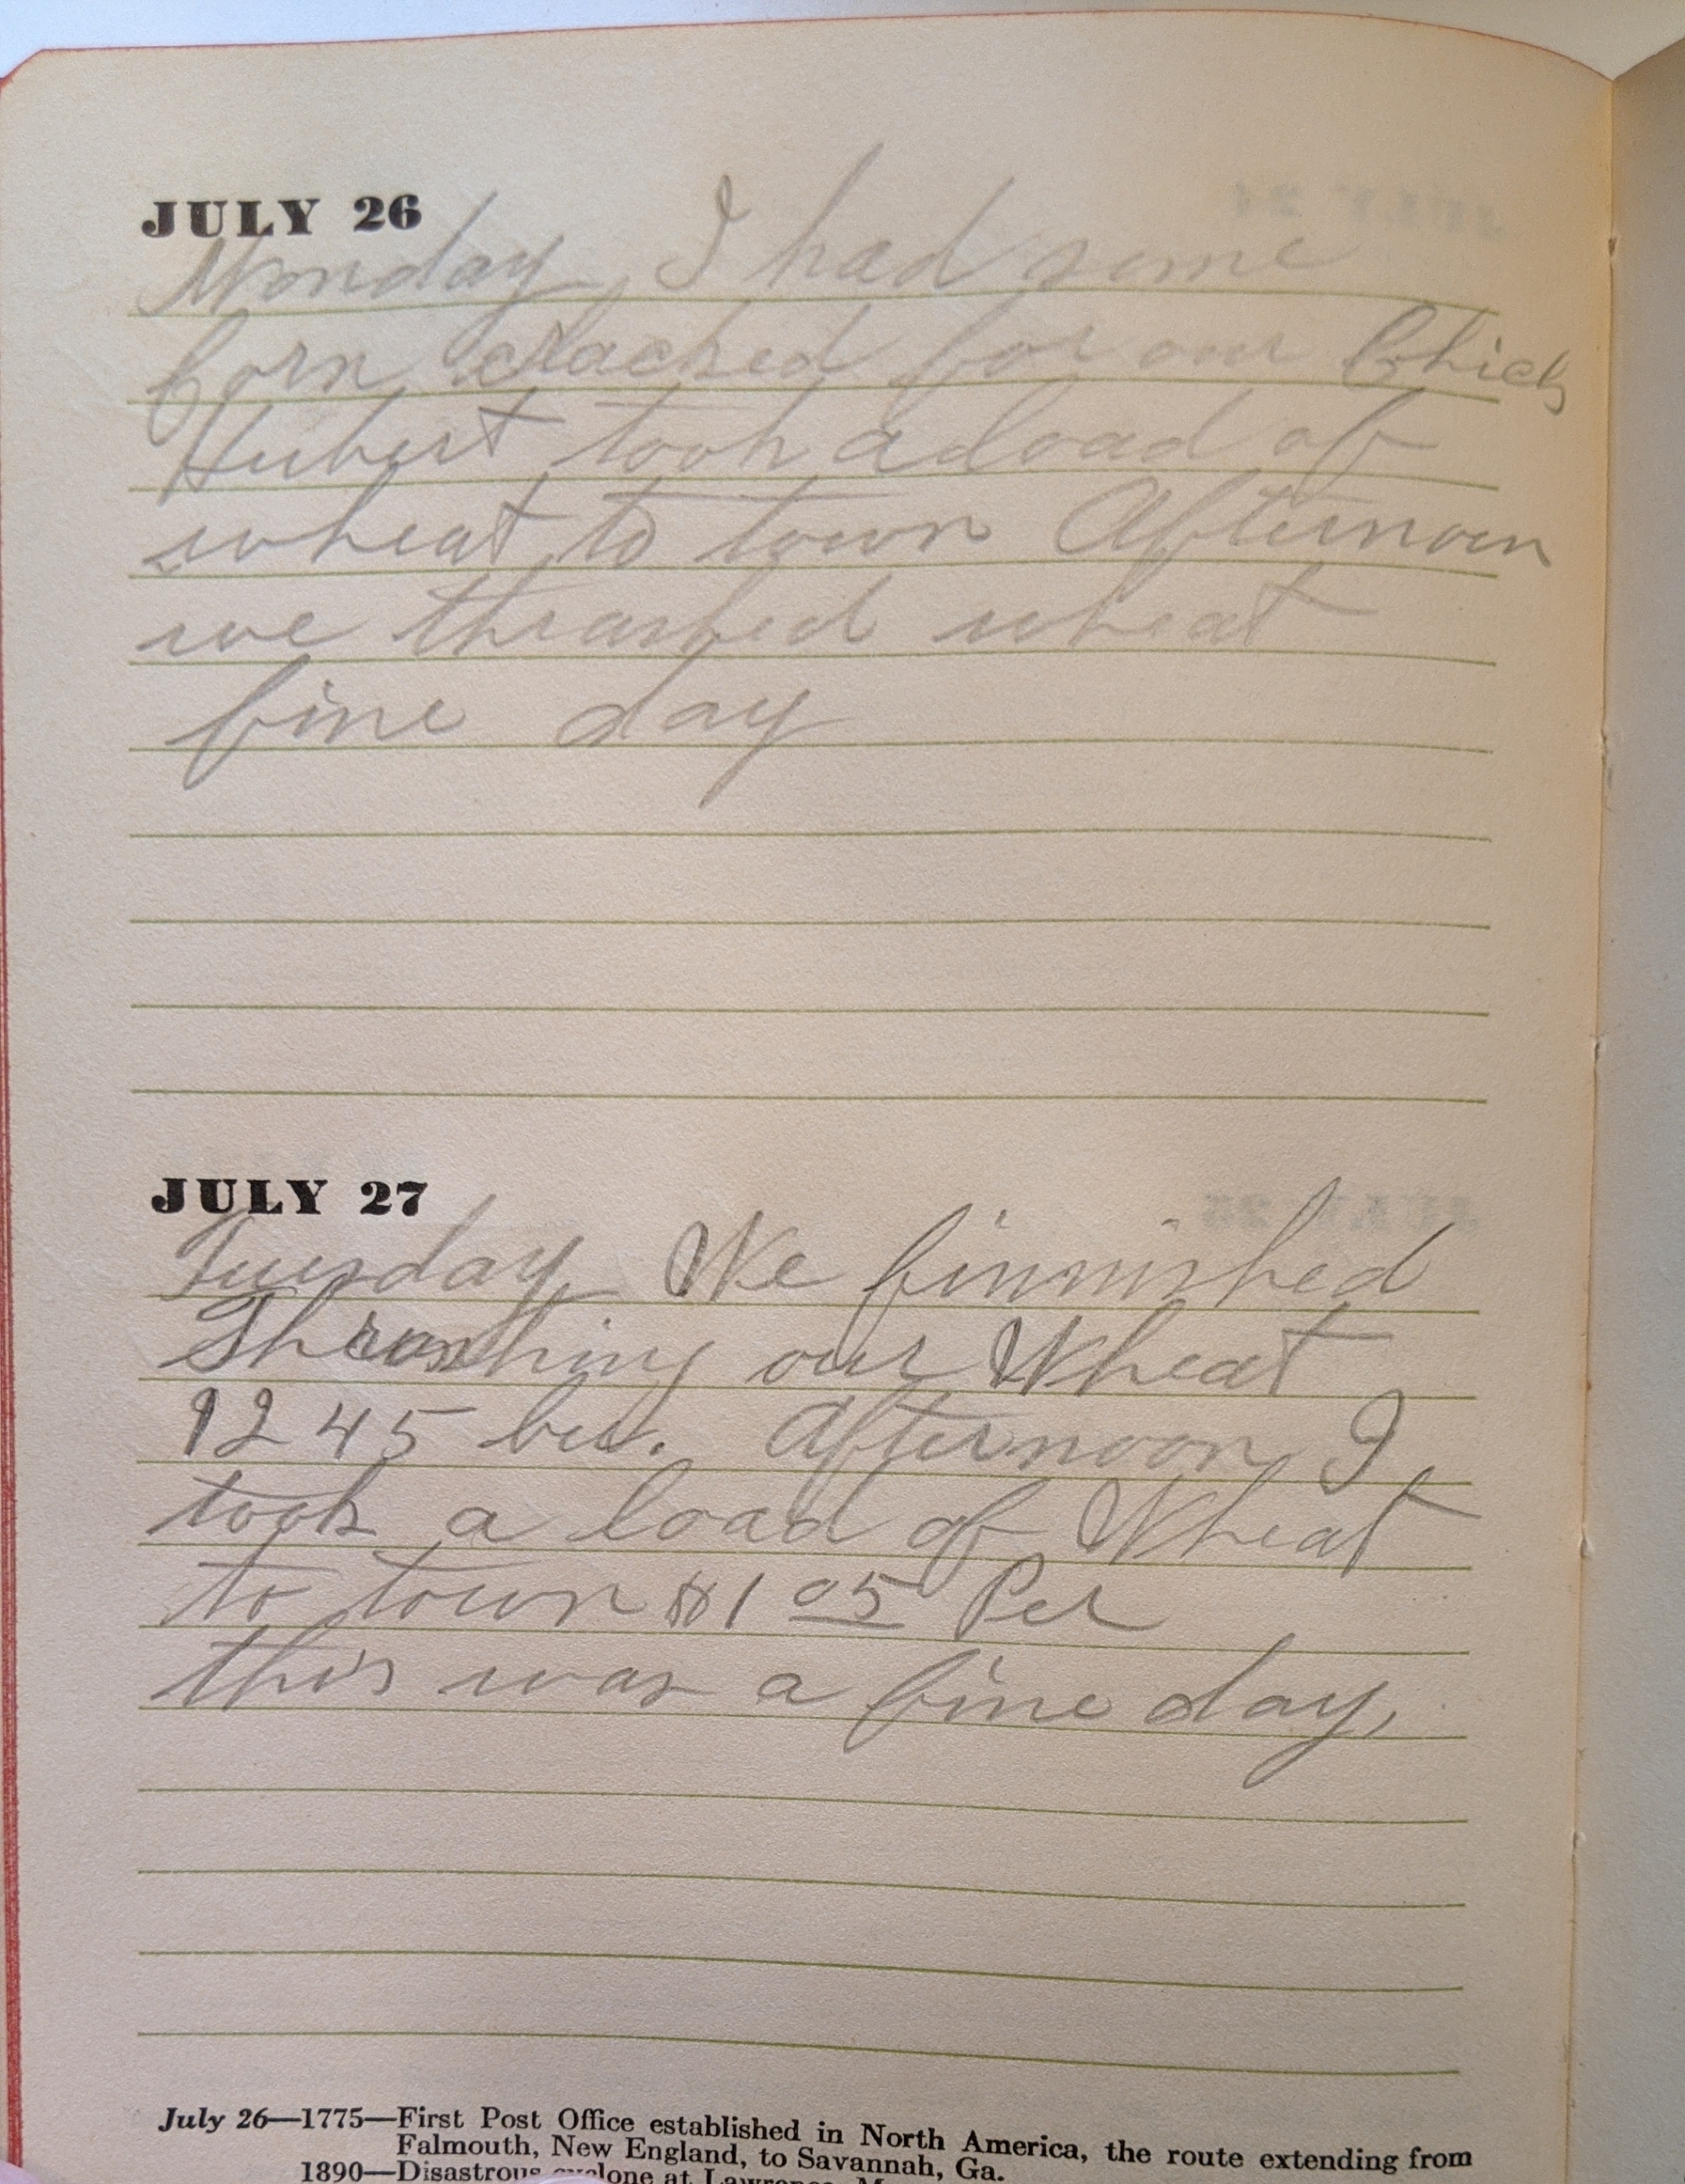 JULY 26
Monday, I had some
Corn cracked for our Chicks
Hubert took a load of
wheat to town Afternoon
we thrashed wheat
fine day
JULY 27
Tuesday, We finnished
Thrashing our Wheat
1245 bu. Afternoon I
took a load of Wheat
to town $1 05 Per
this was a fine day,
July 26—1775—First Post Office established in North America, the route extending from
Falmouth, New England, to Savannah, Ga.
1890—Disastrous cyclone at Lawrence,